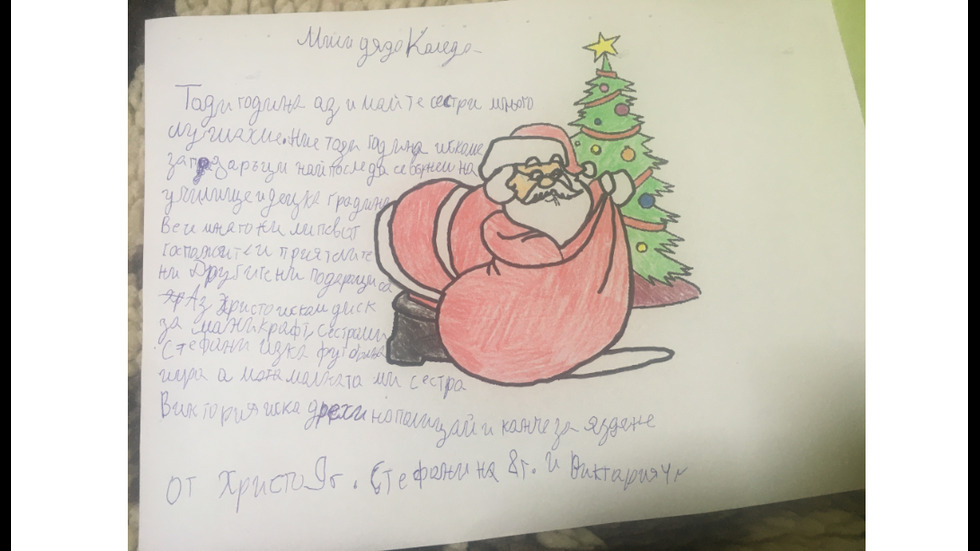 Мили дядо Коледа
Тади година аз и майте сестри много
слушахме. Ние тази година искаме
за подаръци най после да се върнем на
училище и децка градина
Веч много ни липсват
госпожите и приятелите
ни Другите ни подаръци са
Аз Христо искам диск
за майнкрафт, сестрами
Стефани иска футболна
игра а малката ми сестра
Виктория иска дрехи на полицай и канче за яздене
от Христо 9г. Стефани на 8г. и Виктария 4г